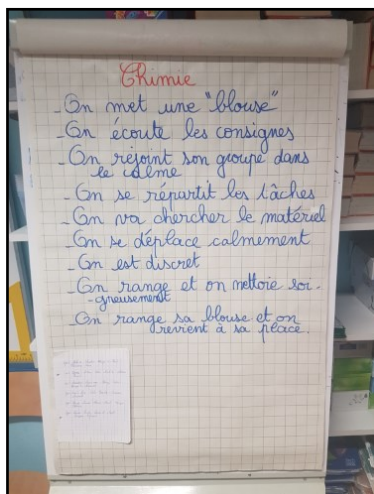 Chimie
- On met une "blouse"
- On écoute les consignes
- On rejoint son groupe dans
le calme
- On se répartit les tâches
- On va chercher le matériel
- On se déplace calmement
- On est discret
- On range et on nettoie soi-
-gneusement
- On range sa blouse et on
revient à sa place.